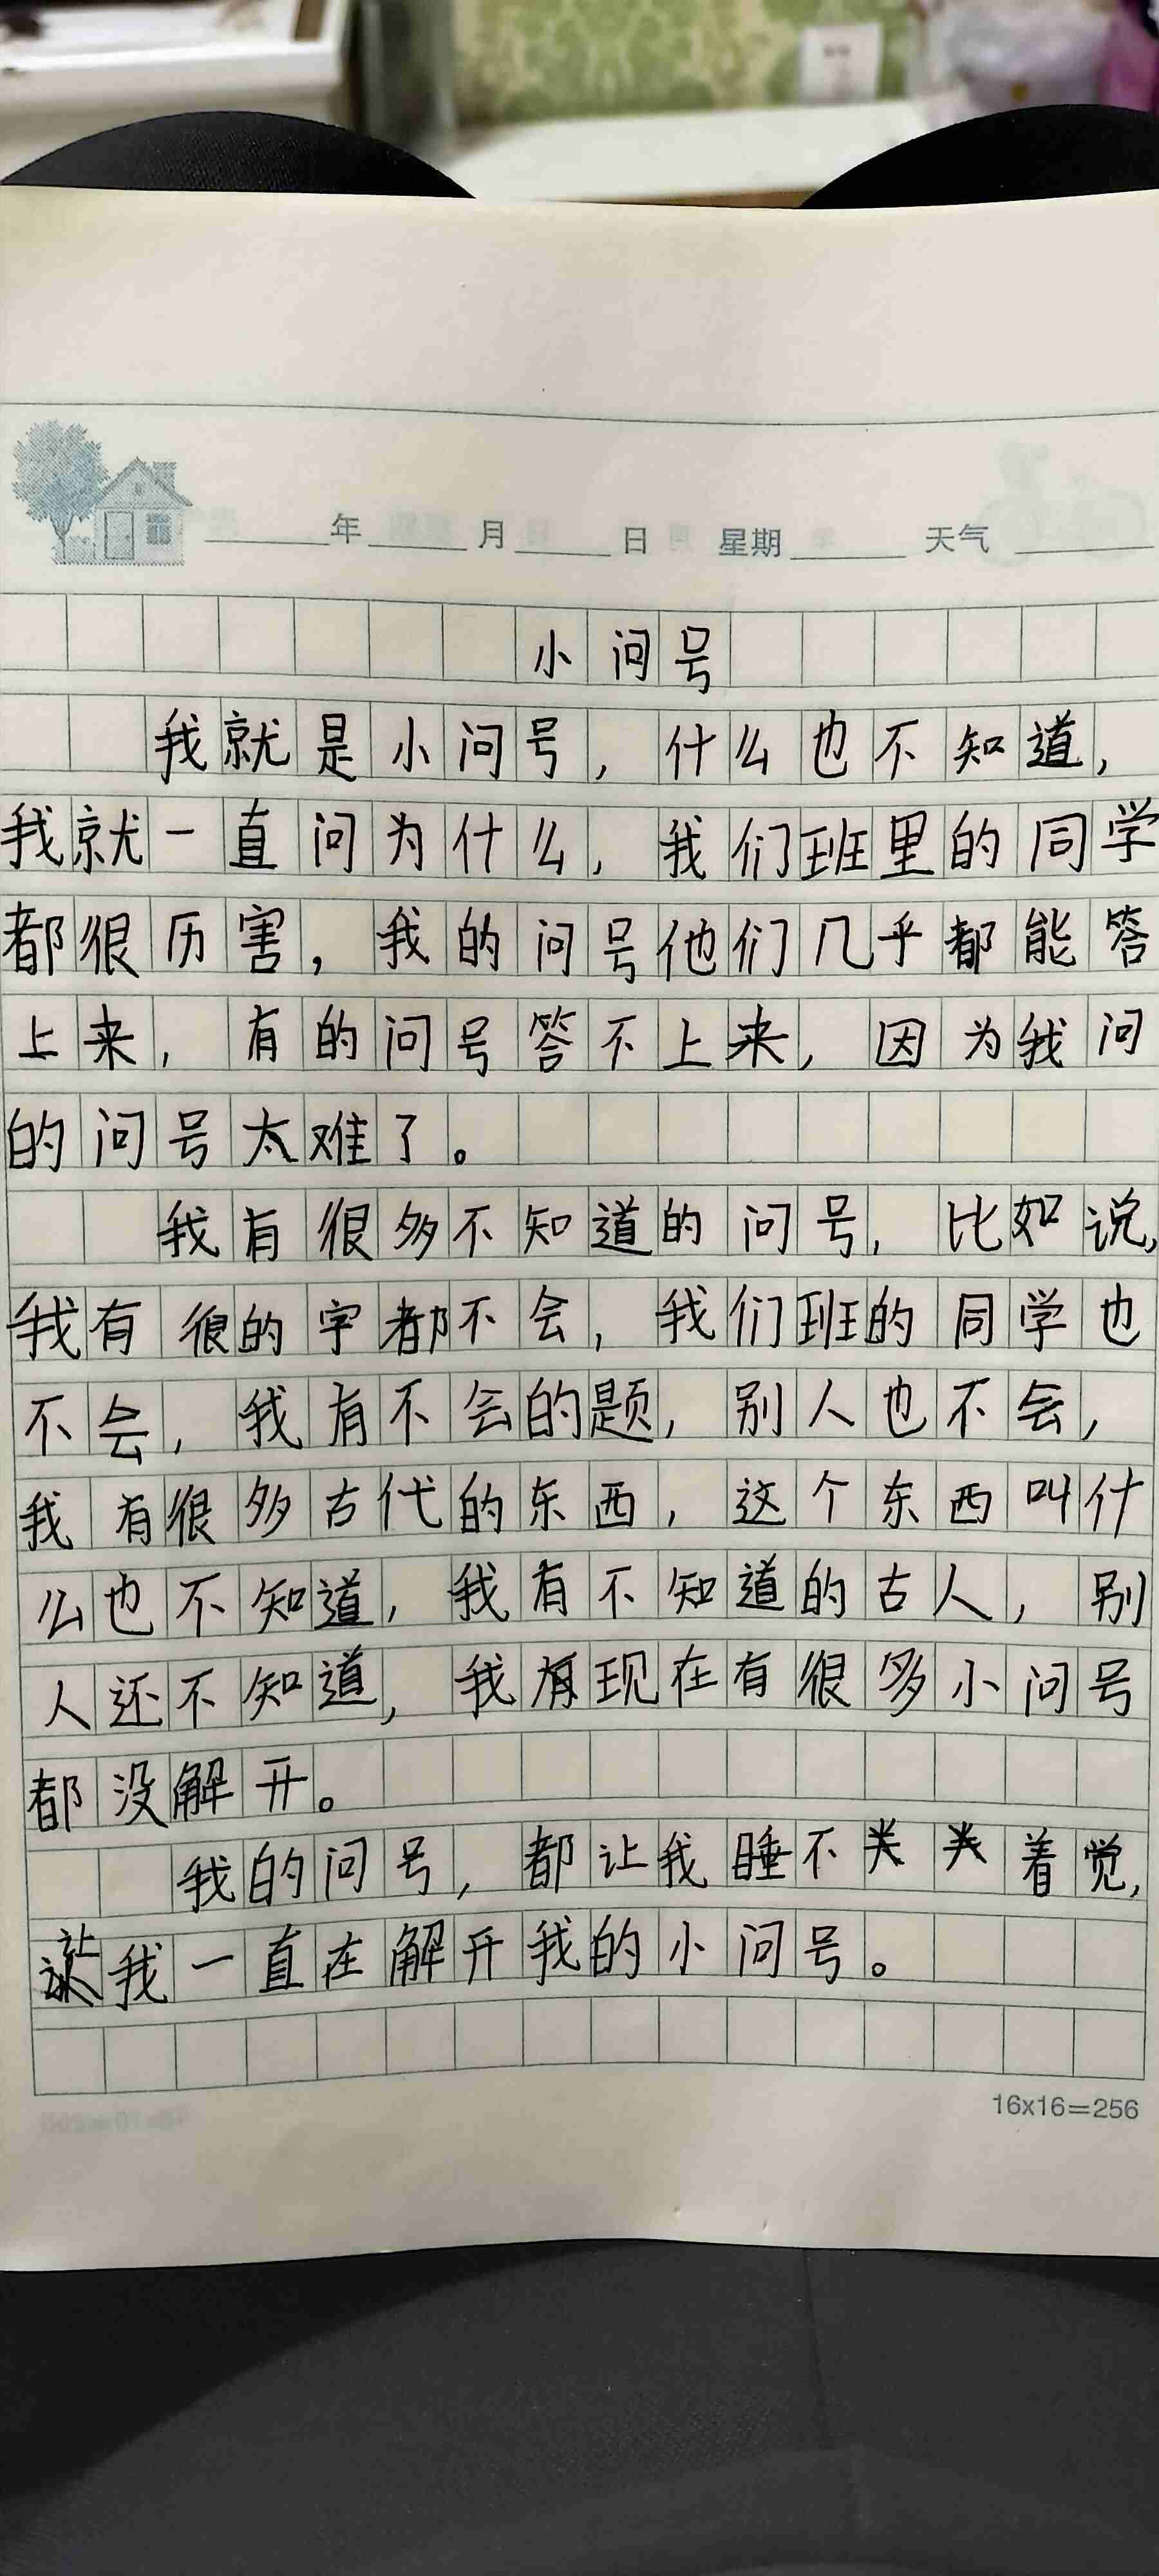 年 月 日 星期 天气
小问号
我就是小问号，什么也不知道，
我就一直问为什么，我们班里的同学
都很历害，我的问号他们几乎都能答
上来，有的问号答不上来，因为我问
的问号太难了。
我有很多不知道的问号，比如说，
我有很的字都不会，我们班的同学也
不会，我有不会的题，别人也不会，
我有很多古代的东西，这个东西叫什
么也不知道，我有不知道的古人，别
人还不知道，我现在有很多小问号
都没解开。
我的问号，都让我睡不着觉，
我一直在解开我的小问号。
16x16=256